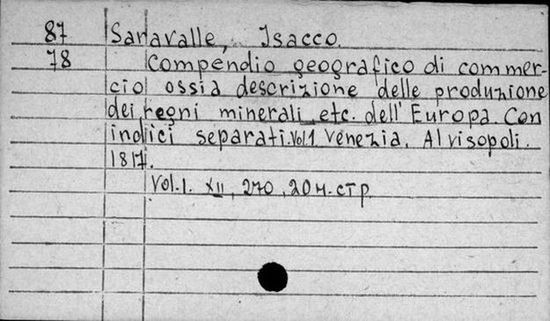 87 Saravalle, Isacco.
78 Compendio geografico di commer-
cio ossia descrizione delle produzione
dei regni minerali, etc. dell' Europa. Con
indici separati. Vol.1 Venezia, Alvisopoli.
1817.
Vol.1. XII, 270, 204. стр.